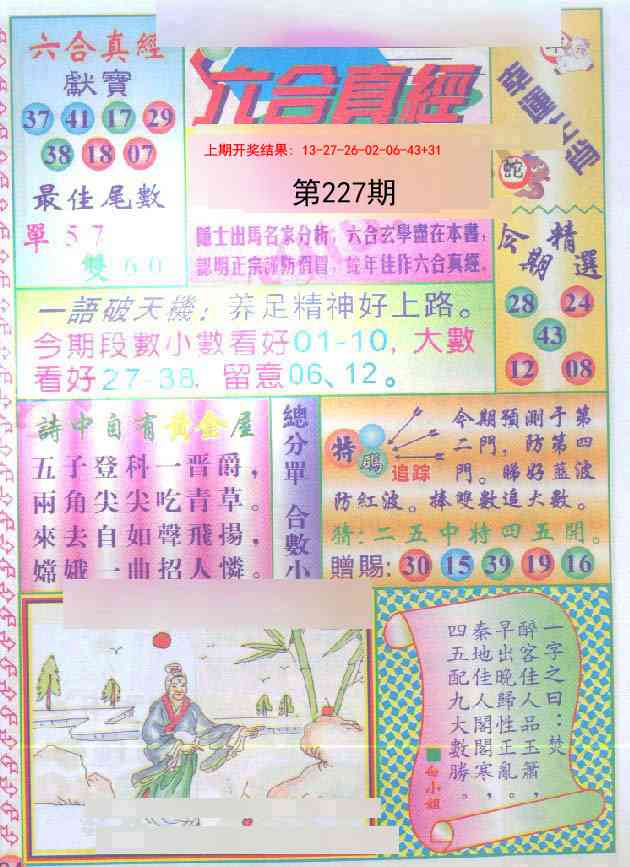 六合真經
獻寶
37 41 17 29
38 18 07
最佳尾數
單 5 7
雙 6 0
六合真經
上期开奖结果: 13-27-26-02-06-43+31
第227期
隱士出馬名家分析，六合玄學盡在本書，
認明正宗謹防假冒，蛇年佳作六合真經。
蛇
今期精選
28 24
43
12 08
一語破天機：养足精神好上路。
今期段數小數看好01-10，大數
看好27-38．留意06、12。
詩中自有黃金屋
五子登科一晋爵，
兩角尖尖吃青草。
來去自如聲飛揚，
嫦娥一曲招人憐。
總分單 合數小
特碼
追踪
今期預測于第
二門，防第四
門。睇好藍波
防紅波。棒雙數追大數。
猜：二五中特四五開。
贈賜: 30 15 39 19 16
一字之曰：焚
醉客佳人品玉簫，
早出晚歸性正亂。
秦地佳人閣閣寒，
四五配九大數勝。
白小姐